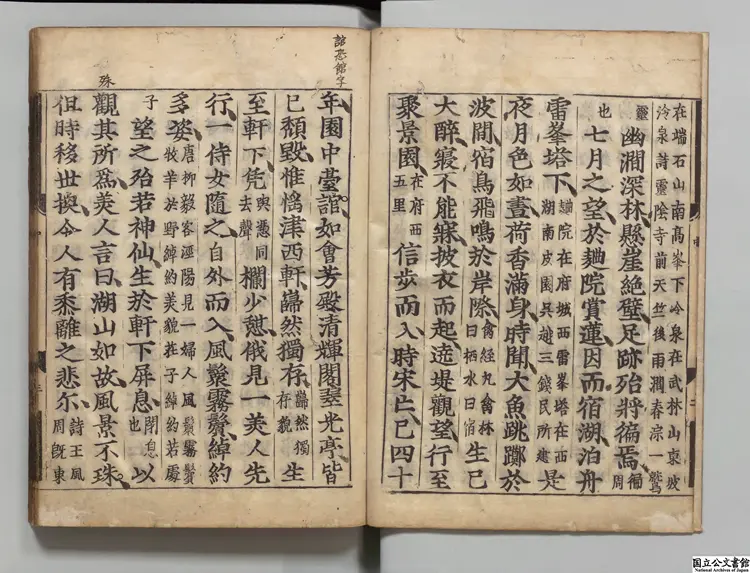 在瑞石山南高峯下冷泉在武林山東坡
冷泉詩靈陰寺前天竺後兩澗春淙一鷲
靈 幽澗深林懸崖絶壁足跡殆將徧焉 徧周
也 七月之望於麯院賞蓮因而宿湖泊舟
雷峯塔下 麯院在府城西雷峯塔在西湖南皮園吳越王錢民所建 是
夜月色如晝荷香滿身時聞大魚跳躑於
波間宿鳥飛鳴於岸際 禽經九禽林曰栖水曰宿 生已
大醉寢不能寐披衣而起遶堤觀望行至
聚景園 在府西五里 信步而入時宋亡已四十
諧恐館字
年園中臺諧如會芳殿清輝閣翠光亭皆
已頹毀惟瑤津西軒巋然獨存 巋然獨存貌 生
至軒下凭 與憑同去聲 欄少憇俄見一美人先
行一侍女隨之自外而入風鬟霧鬢綽約
多姿 唐柳毅客涇陽見一婦人風鬟霧鬢牧羊於野綽約美貌莊子綽約若處
子 望之殆若神仙生於軒下屏息 閉息也 以
殊
觀其所為美人言曰湖山如故風景不珠
但時移世換令人有黍離之悲尓 詩王風周旣東
国立公文書館
National Archives of Japan